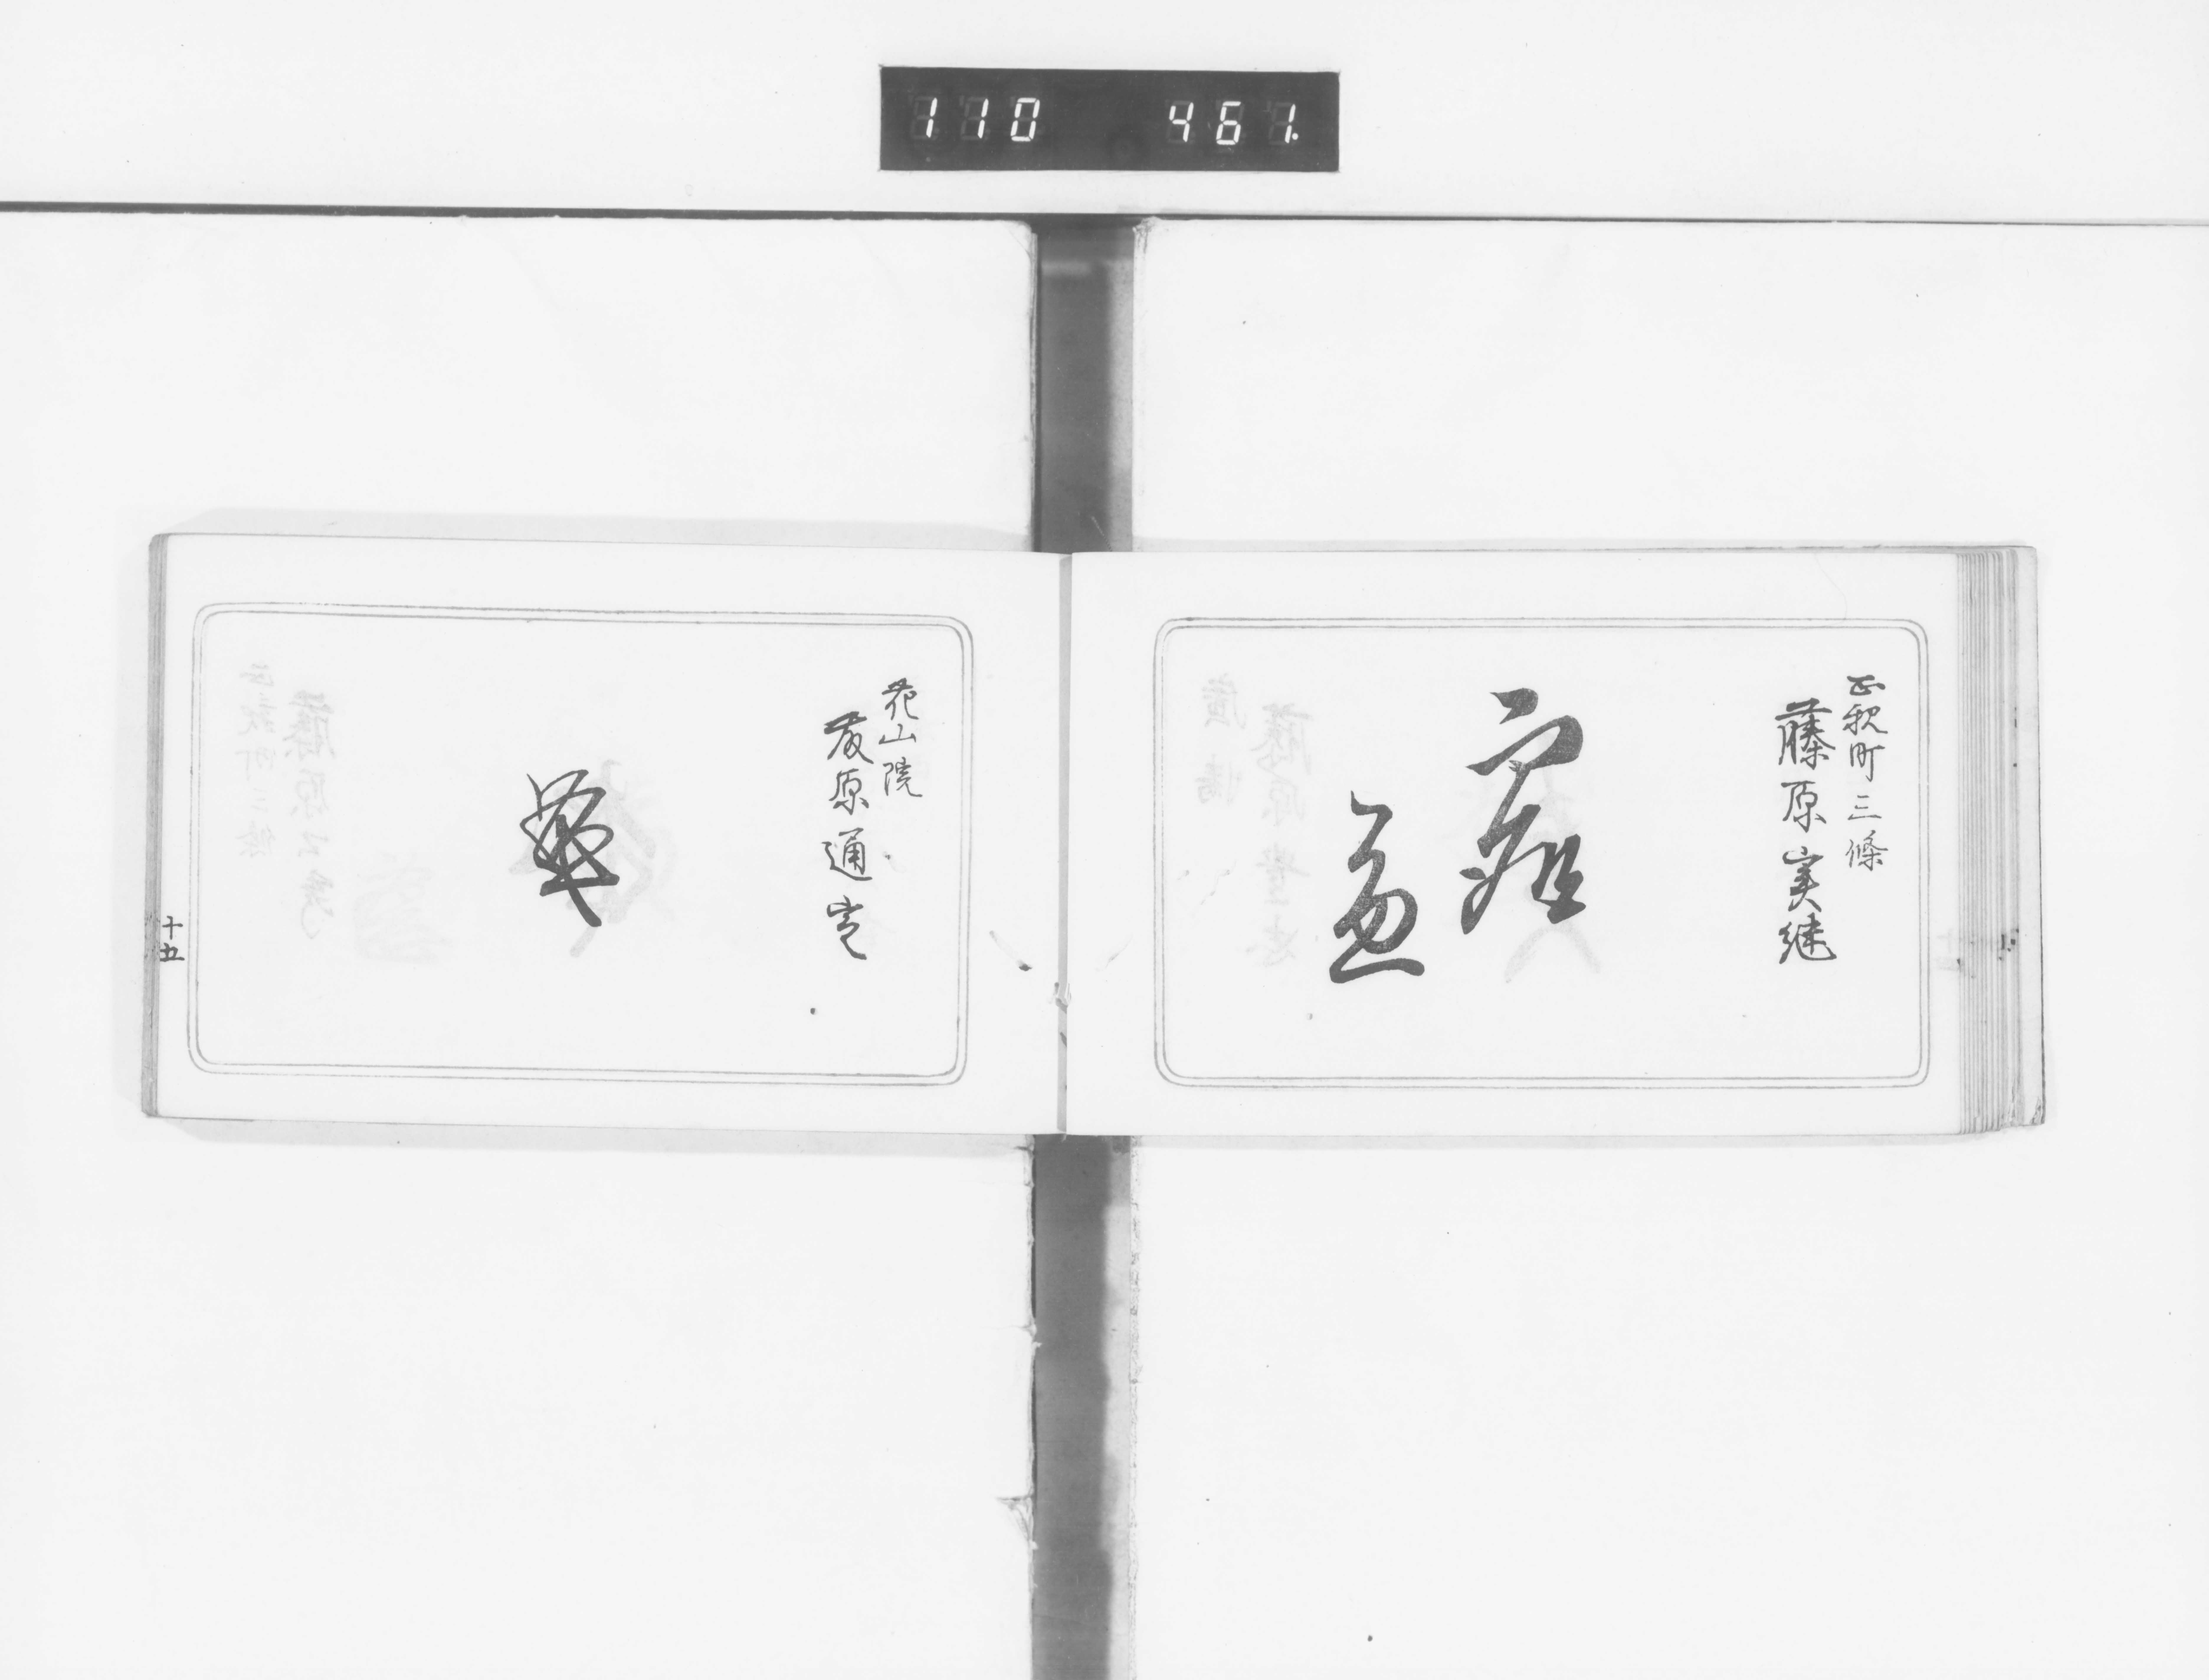 110 461.
正親町三條
藤原実継
花山院
藤原通定
十五